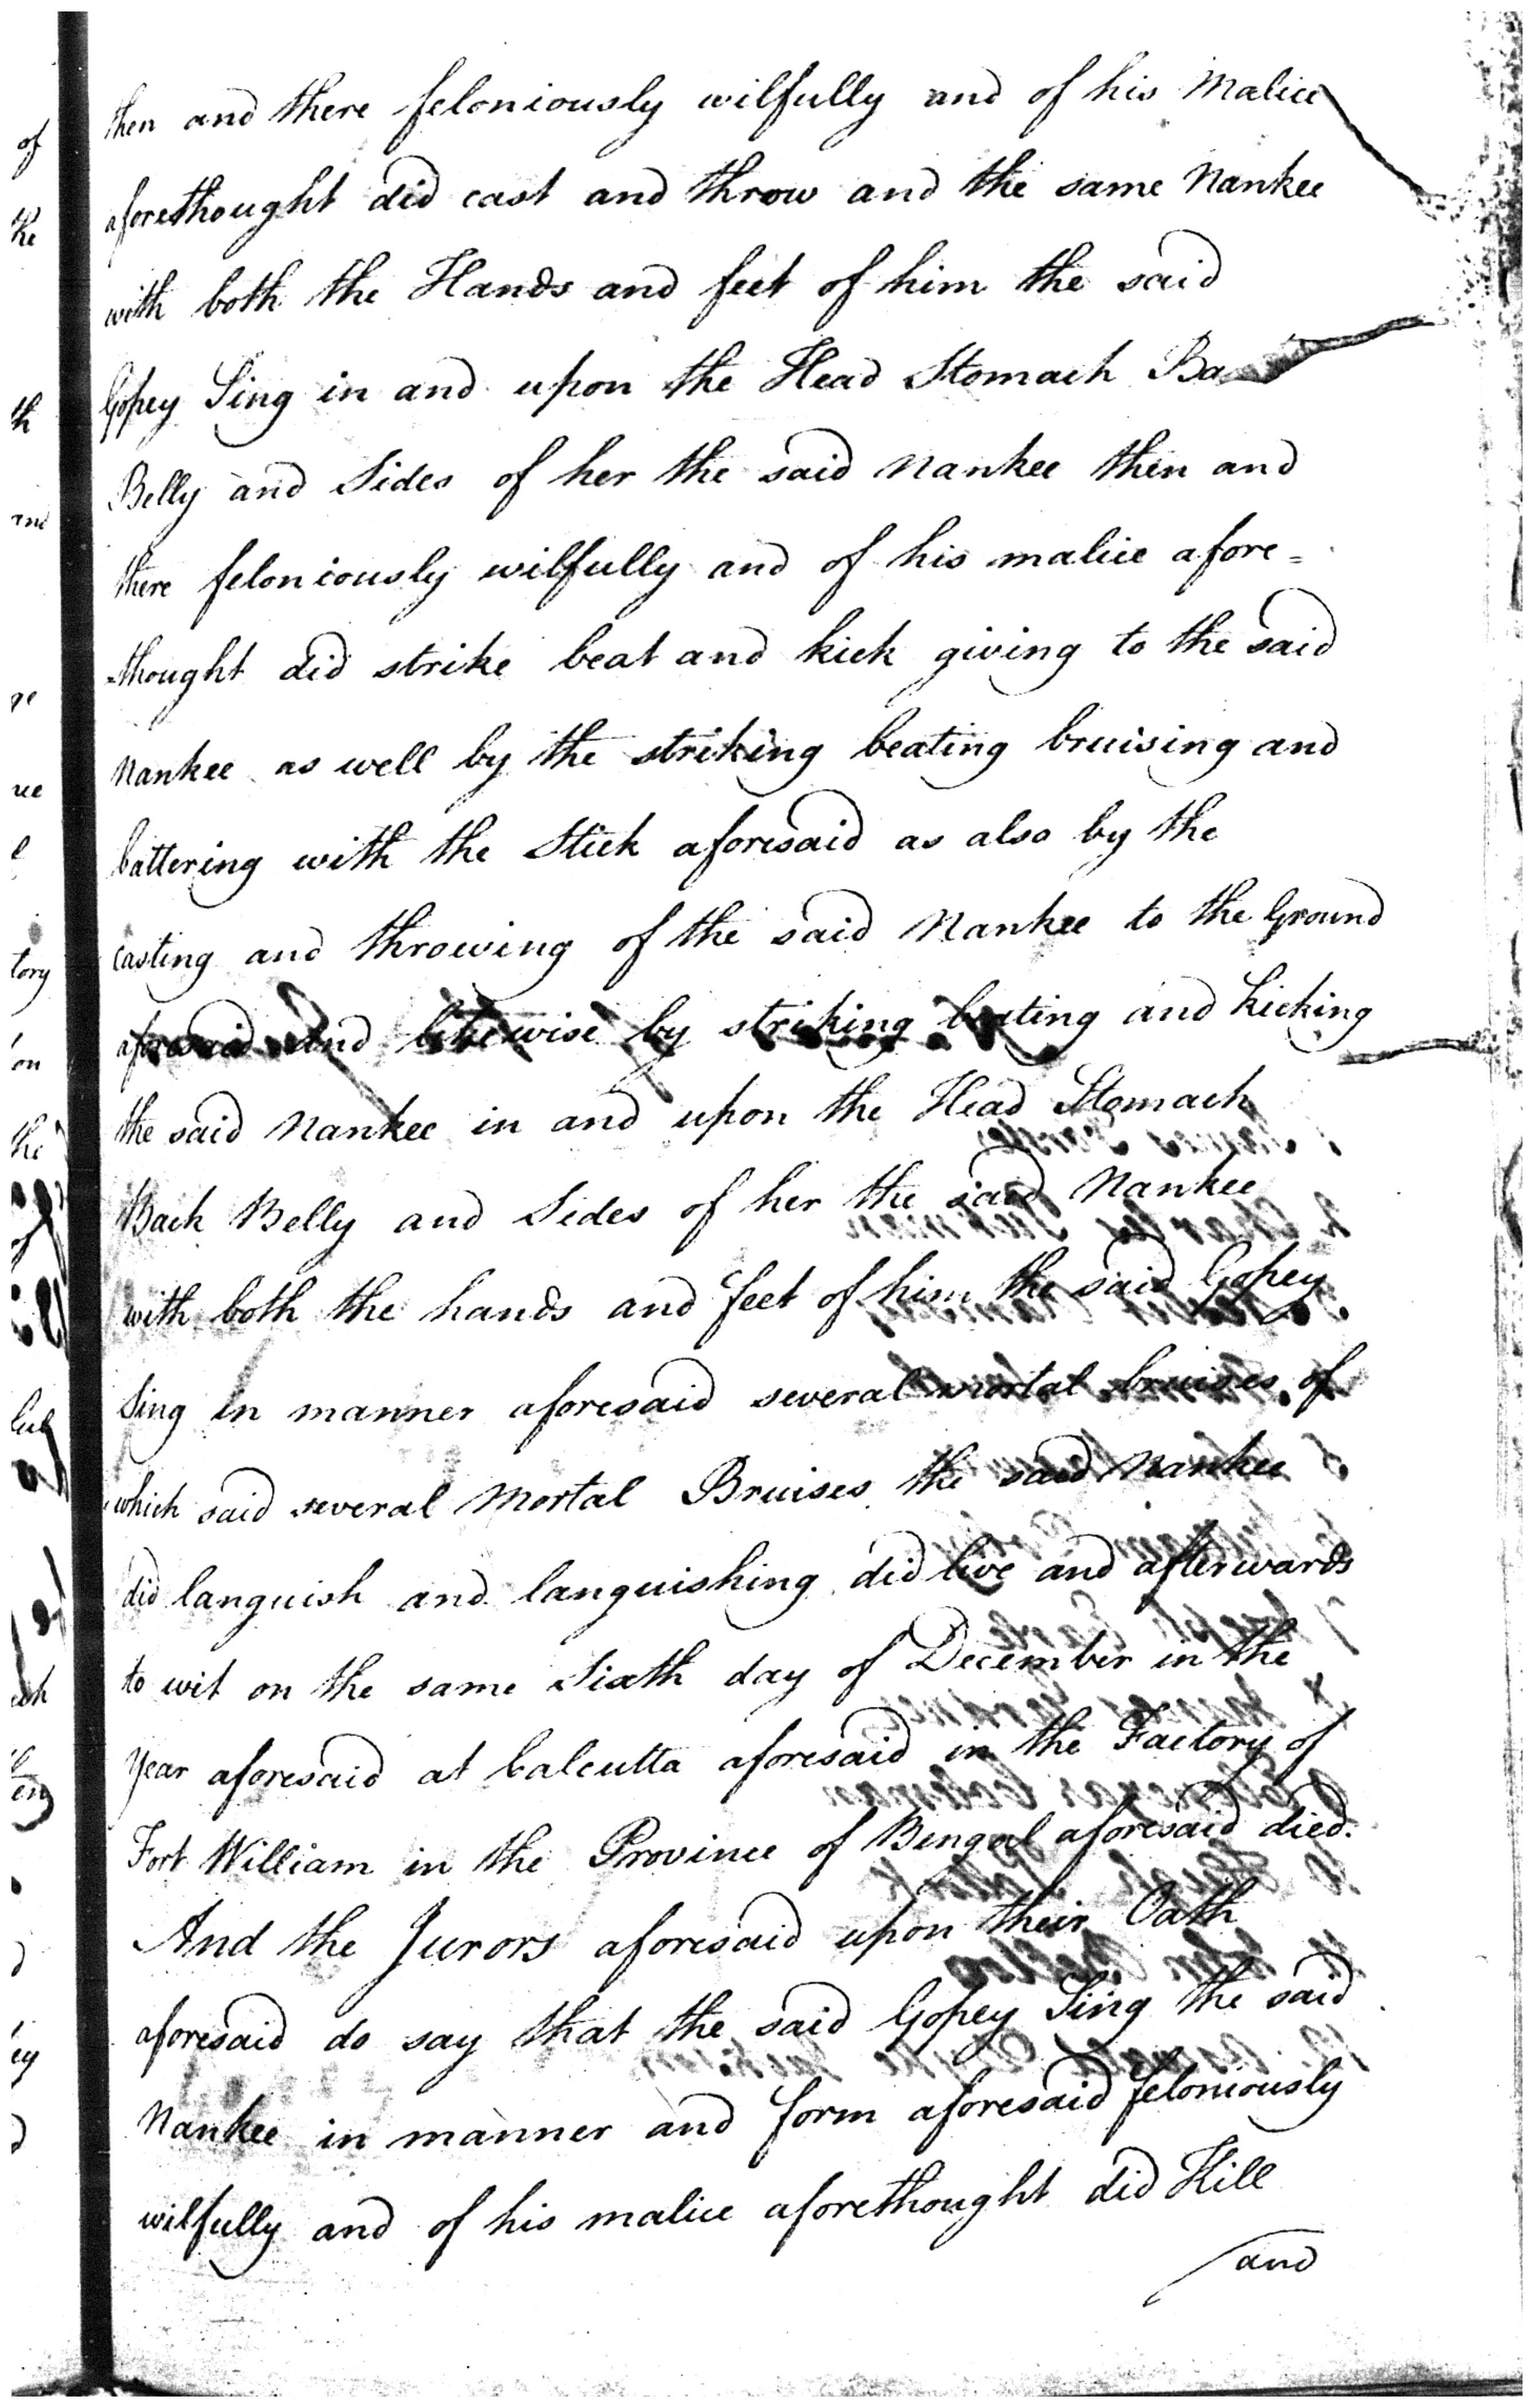 then and there feloniously wilfully and of his Malice
aforethought did cast and throw and the same Nankee
with both the Hands and feet of him the said
Gopey Sing in and upon the Head Stomach Ba
Belly and Sides of her the said Nankee then and
there feloniously wilfully and of his malice afore=
=thought did strike beat and kick giving to the said
Nankee as well by the striking beating bruising and
battering with the Stick aforesaid as also by the
casting and throwing of the said Nankee to the Ground
aforesaid and likewise by striking beating and kicking
the said Nankee in and upon the Head Stomach
Back Belly and Sides of her the said Nankee
with both the hands and feet of him the said Gopey
Sing in manner aforesaid several mortal bruises of
which said several Mortal Bruises the said Nankee
did languish and languishing did live and afterwards
to wit on the same Sixth day of December in the
Year aforesaid at Calcutta aforesaid in the Factory of
Fort William in the Province of Bengal aforesaid died.
And the Jurors aforesaid upon their Oath
aforesaid do say that the said Gopey Sing the said
Nankee in manner and form aforesaid feloniously
wilfully and of his malice aforethought did Kill
and